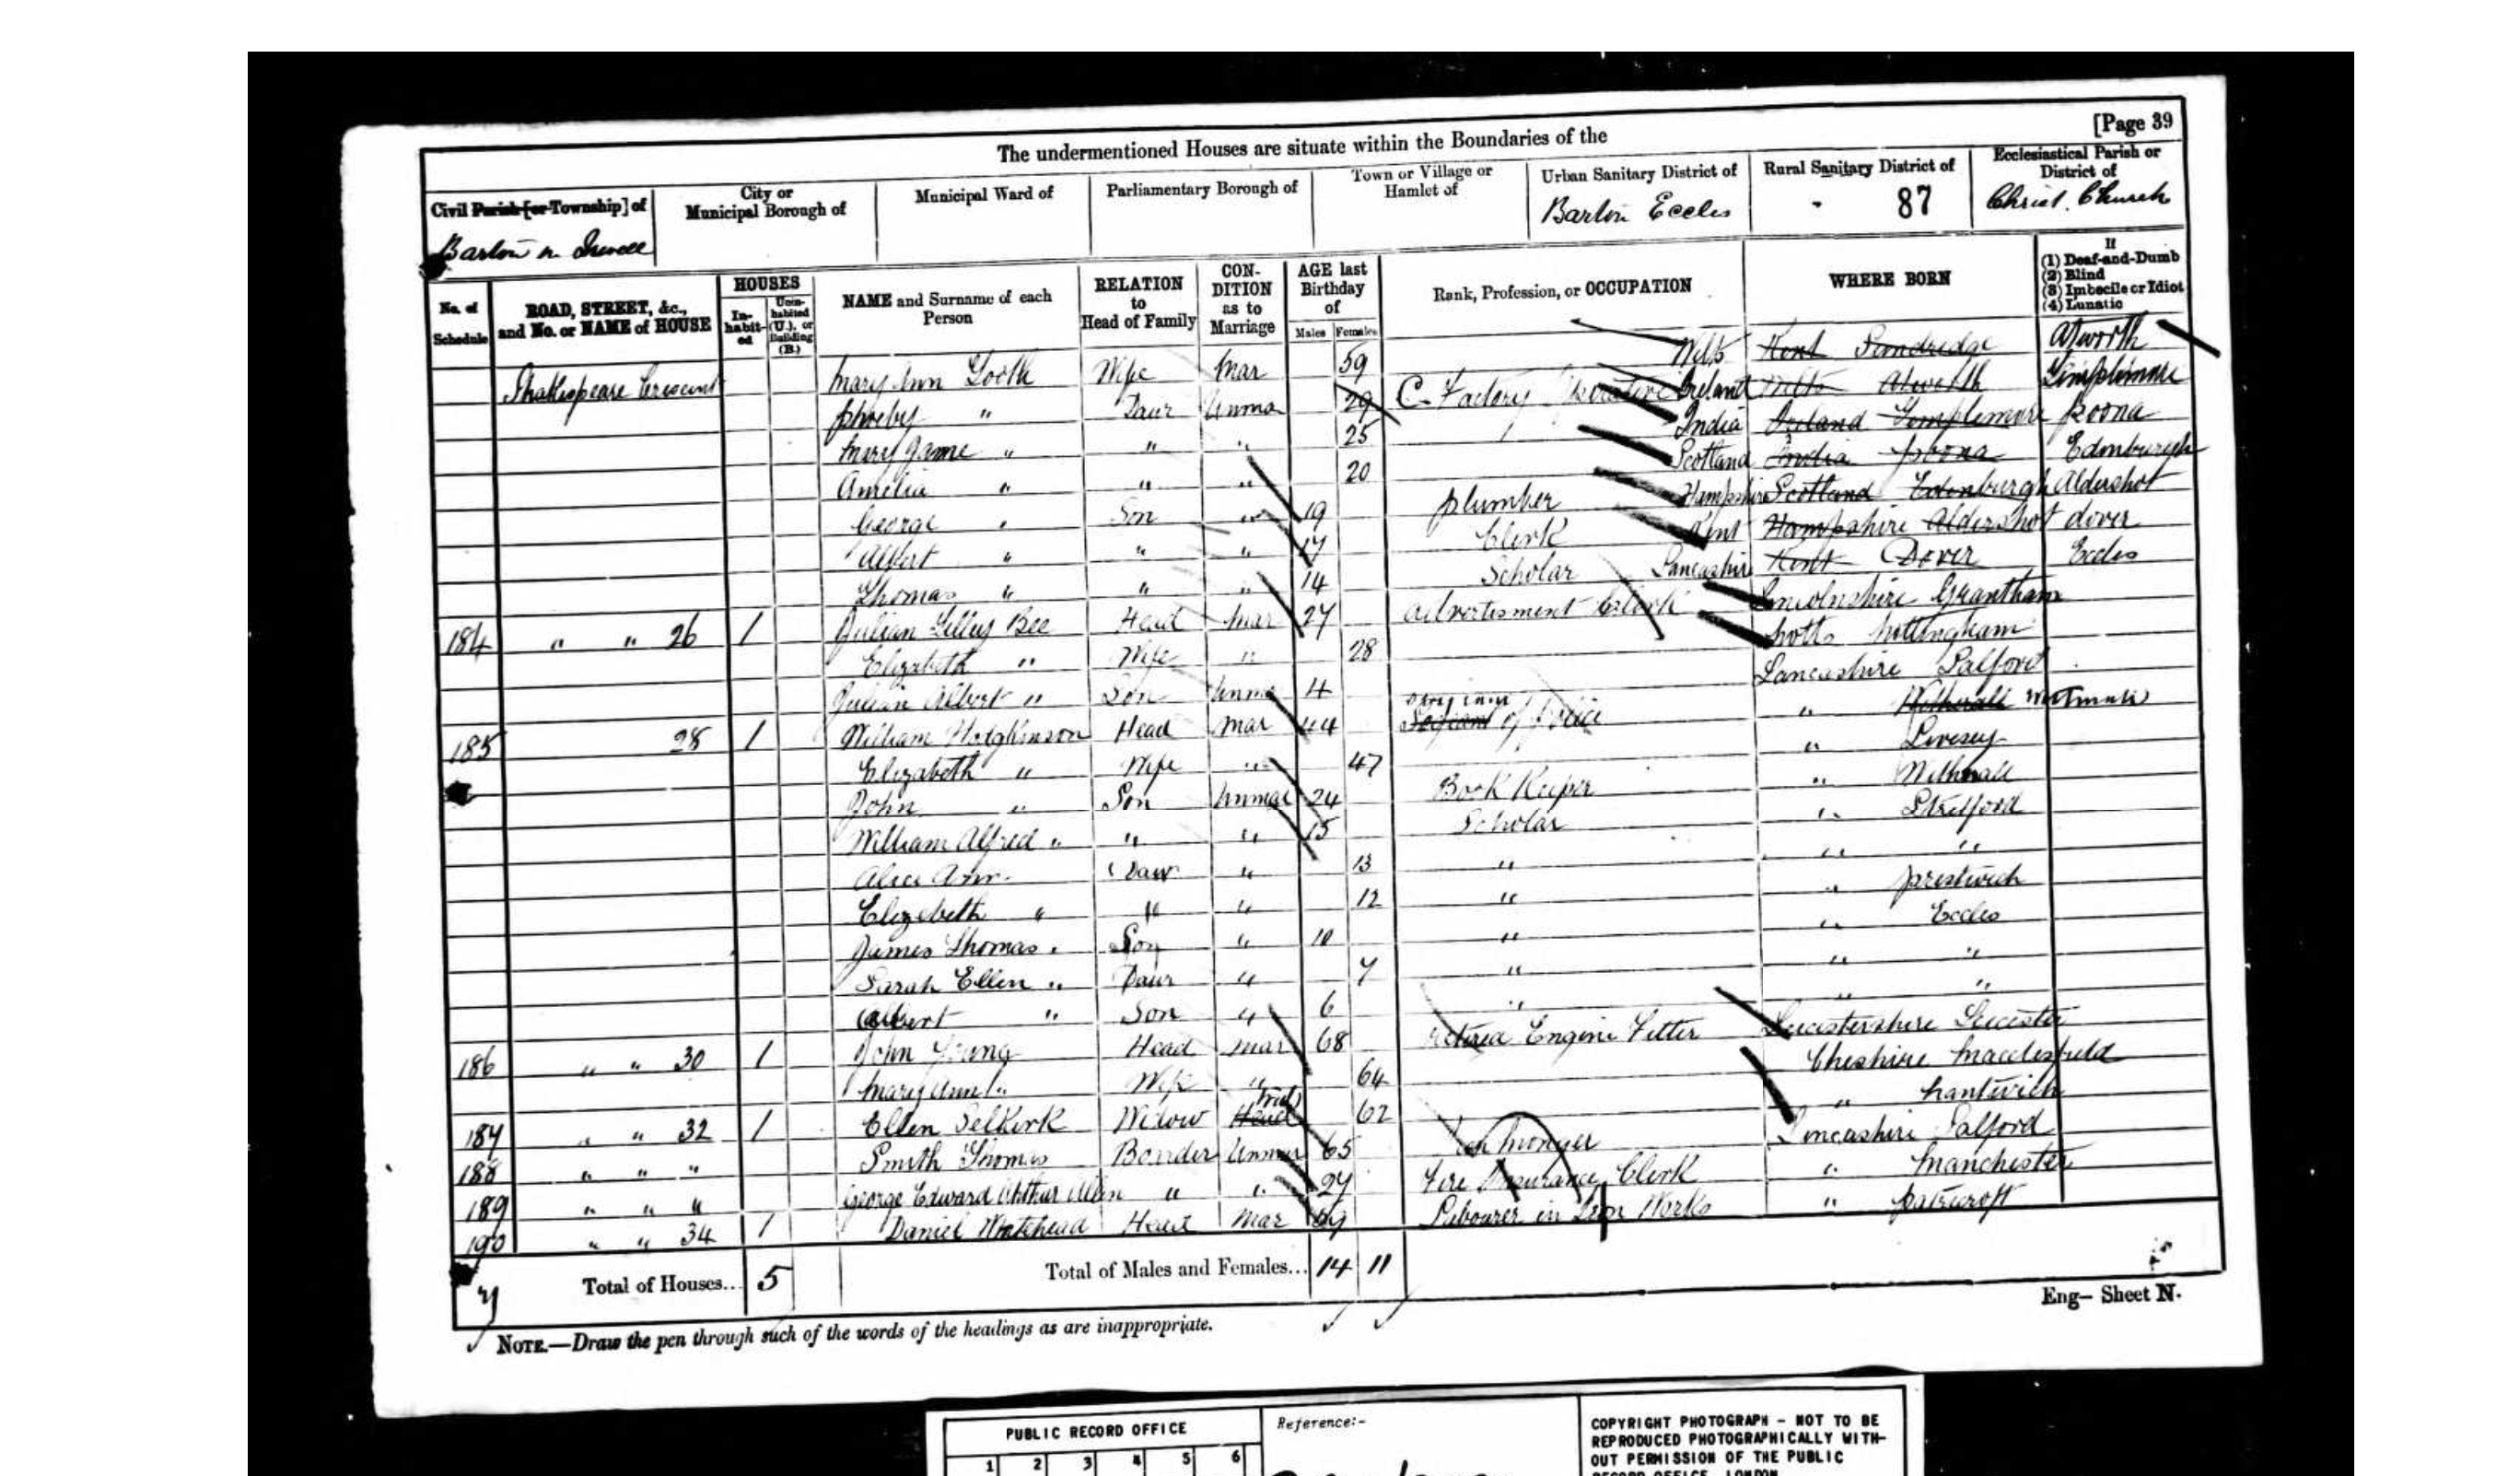 [Page 39
The undermentioned Houses are situate within the Boundaries of the
Civil Parish [or Township] of
City or Municipal Borough of
Municipal Ward of
Parliamentary Borough of
Town or Village or Hamlet of
Urban Sanitary District of
Rural Sanitary District of
Ecclesiastical Parish or District of
Barton n Irwell
Barton Eccles
87
Christ. Church
No. of Schedule
ROAD, STREET, &c., and No. or NAME of HOUSE
HOUSES
In-habit-ed
Unin-habited (U.), or Building (B.)
NAME and Surname of each Person
RELATION to Head of Family
CON-DITION as to Marriage
AGE last Birthday of
Males
Females
Rank, Profession, or OCCUPATION
WHERE BORN
If
(1) Deaf-and-Dumb
(2) Blind
(3) Imbecile or Idiot
(4) Lunatic
Shakespeare Crescent Mary Ann Tooth Wife Mar 59 Wilts Kent Sundridge Atworth
Phoeby " Daur Unmar 29 C. Factory Operative Ireland Wilts Atworth Templemore
Mary Jane " " " 25 India Ireland Templemore Poona
Amelia " " " 20 Scotland India Poona Edinburgh
George " Son " 19 Plumber Hampshire Scotland Edenburgh Aldershot
Albert " " " 17 Clerk Kent Hampshire Aldershot dover
Thomas " " " 14 Scholar Lancashire Kent Dover Eccles
184 " " 26 1 Julian Bee Head Mar 27 Advertisment Clerk Lincolnshire Grantham
Elizabeth " Wife " 28 Notts Nottingham
Julian Albert " Son Unma 4 Lancashire Salford
185 28 1 William Hodgkinson Head Mar 44 of Police "
Elizabeth " Wife " 47 " Livesey
John " Son Unmar 24 Book Keeper " Withnall
William Alfred " " " 15 Scholar " Stretford
Alice Ann Daur " 13 " " "
Elizebeth " " " 12 " " Prestwich
James Thomas " Son " 10 " " Eccles
Sarah Ellen " Daur " 7 " " "
Albert " Son " 6 " " "
186 " " 30 1 John Young Head Mar 68 Engine Fitter Leicestershire Leicester
Mary Ann " Wife " 64 Cheshire Macclesfield
187 " " 32 1 Ellen Selkirk Widow Head Wid 62 " Nantwich
188 " " " Smith Thomas Boarder Unmar 65 Lancashire Salford
189 " " " George Edward Arthur Allen " " 27 Fire Insurance Clerk " Manchester
190 " " 34 1 Daniel Whitehead Head Mar 69 Labourer in Iron Works " Patricroft
Total of Houses... 5
Total of Males and Females... 14 11
Eng— Sheet N.
NOTE.—Draw the pen through such of the words of the headings as are inappropriate.
PUBLIC RECORD OFFICE
Reference:-
1 2 3 4 5 6
COPYRIGHT PHOTOGRAPH - NOT TO BE
REPRODUCED PHOTOGRAPHICALLY WITH-
OUT PERMISSION OF THE PUBLIC
RECORD OFFICE, LONDON